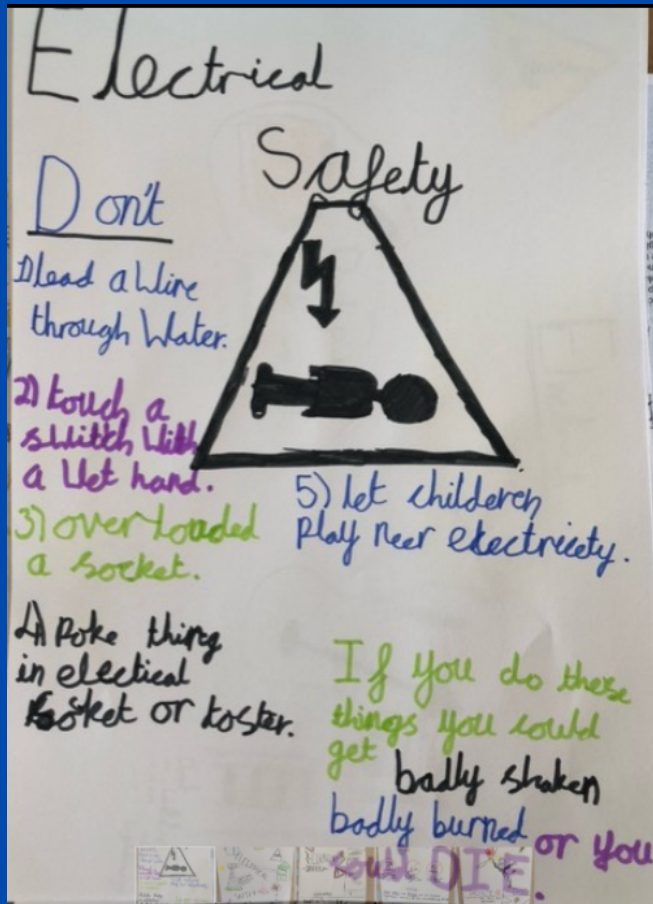 Electrical
Safety
Don't
1) lead a wire
through water.
2) touch a
switch with
a wet hand.
3) overloaded
a socket.
4) Poke thing
in electical
socket or toster.
5) let childeren
Play neer electricety.
If you do these
things you could
get badly shaken
badly burned or you
could DIE.